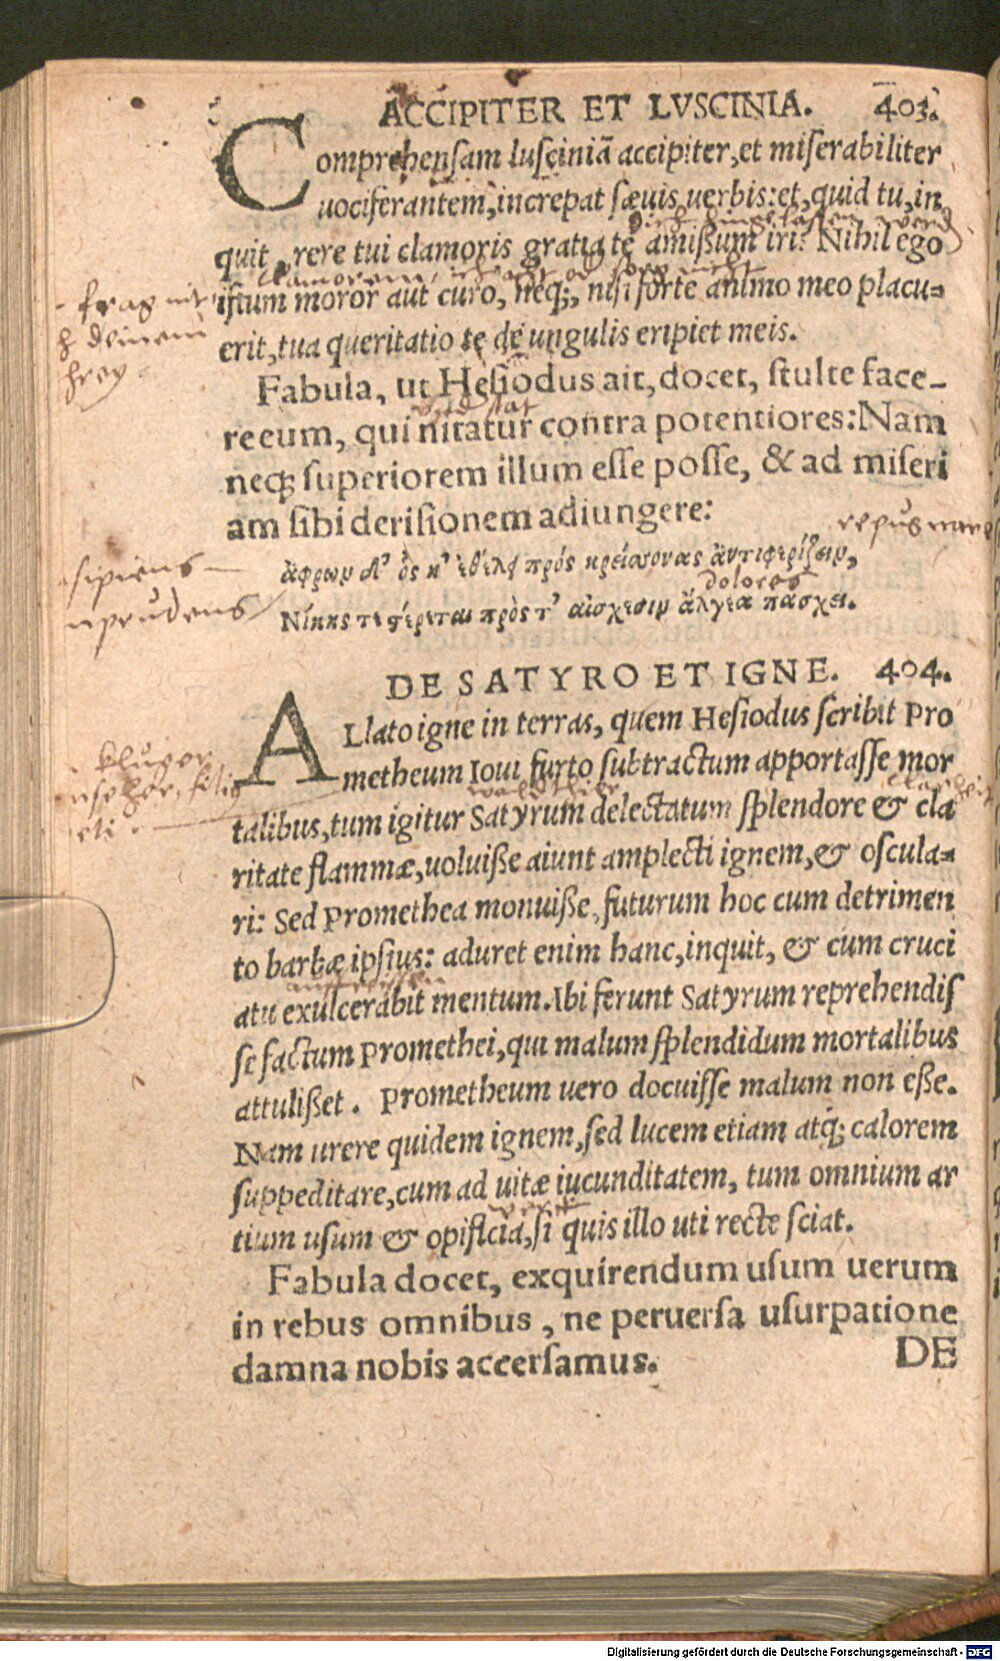 ACCIPITER ET LVSCINIA. 403.
Comprehensam lusciniā accipiter, et miserabiliter
uociferantem, increpat sæuis uerbis: et, quid tu, in
quit, rere tui clamoris gratia te amissum iri? Nihil ego
clamorem
istum moror aut curo, neq;, nisi forte animo meo placu=
erit, tua queritatio te de ungulis eripiet meis.
Fabula, ut Hesiodus ait, docet, stulte face-
re eum, qui nitatur contra potentiores: Nam
neq; superiorem illum esse posse, & ad miseri
am sibi derisionem adiungere:
ἄφρων δ' ὅς κ' ἐθέλῃ πρός κρείσσονας ἀντιφερίζειν,
dolores
Νίκης τε στέρεται πρὸς τ' αἴσχεσιν ἄλγεα πάσχει.
DE SATYRO ET IGNE. 404.
ALlato igne in terras, quem Hesiodus scribit Pro
metheum Ioui furto subtractum apportasse mor
talibus, tum igitur Satyrum delectatum splendore & cla
ritate flammæ, uoluisse aiunt amplecti ignem, & oscula=
ri: Sed Promethea monuisse, futurum hoc cum detrimen
to barbæ ipsius: aduret enim hanc, inquit, & cum cruci
atu exulcerabit mentum. Ibi ferunt Satyrum reprehendis
se factum Promethei, qui malum splendidum mortalibus
attulisset. Prometheum uero docuisse malum non esse.
Nam urere quidem ignem, sed lucem etiam atq; calorem
suppeditare, cum ad uitæ iucunditatem, tum omnium ar
tium usum & opificia, si quis illo uti recte sciat.
Fabula docet, exquirendum usum uerum
in rebus omnibus, ne peruersa usurpatione
damna nobis accersamus.
DE
Digitalisierung gefördert durch die Deutsche Forschungsgemeinschaft - DFG